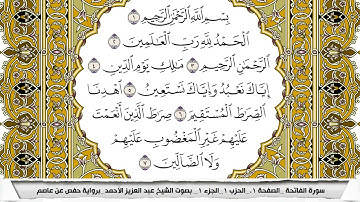 بِسْمِ ٱللَّهِ ٱلرَّحْمَٰنِ ٱلرَّحِيمِ ١
ٱلْحَمْدُ لِلَّهِ رَبِّ ٱلْعَٰلَمِينَ ٢
ٱلرَّحْمَٰنِ ٱلرَّحِيمِ ٣ مَٰلِكِ يَوْمِ ٱلدِّينِ ٤
إِيَّاكَ نَعْبُدُ وَإِيَّاكَ نَسْتَعِينُ ٥ ٱهْدِنَا
ٱلصِّرَٰطَ ٱلْمُسْتَقِيمَ ٦ صِرَٰطَ ٱلَّذِينَ أَنْعَمْتَ
عَلَيْهِمْ غَيْرِ ٱلْمَغْضُوبِ عَلَيْهِمْ
وَلَا ٱلضَّآلِّينَ ٧
سورة الفاتحة _الصفحة ١_ الحزب ١_ الجزء ١ _ بصوت الشيخ عبد العزيز الأحمد_ برواية حفص عن عاصم